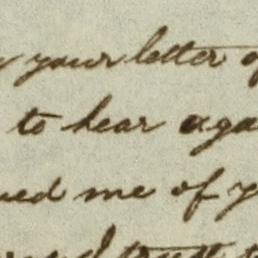 your letter of
to hear aga
ued me of y
trust